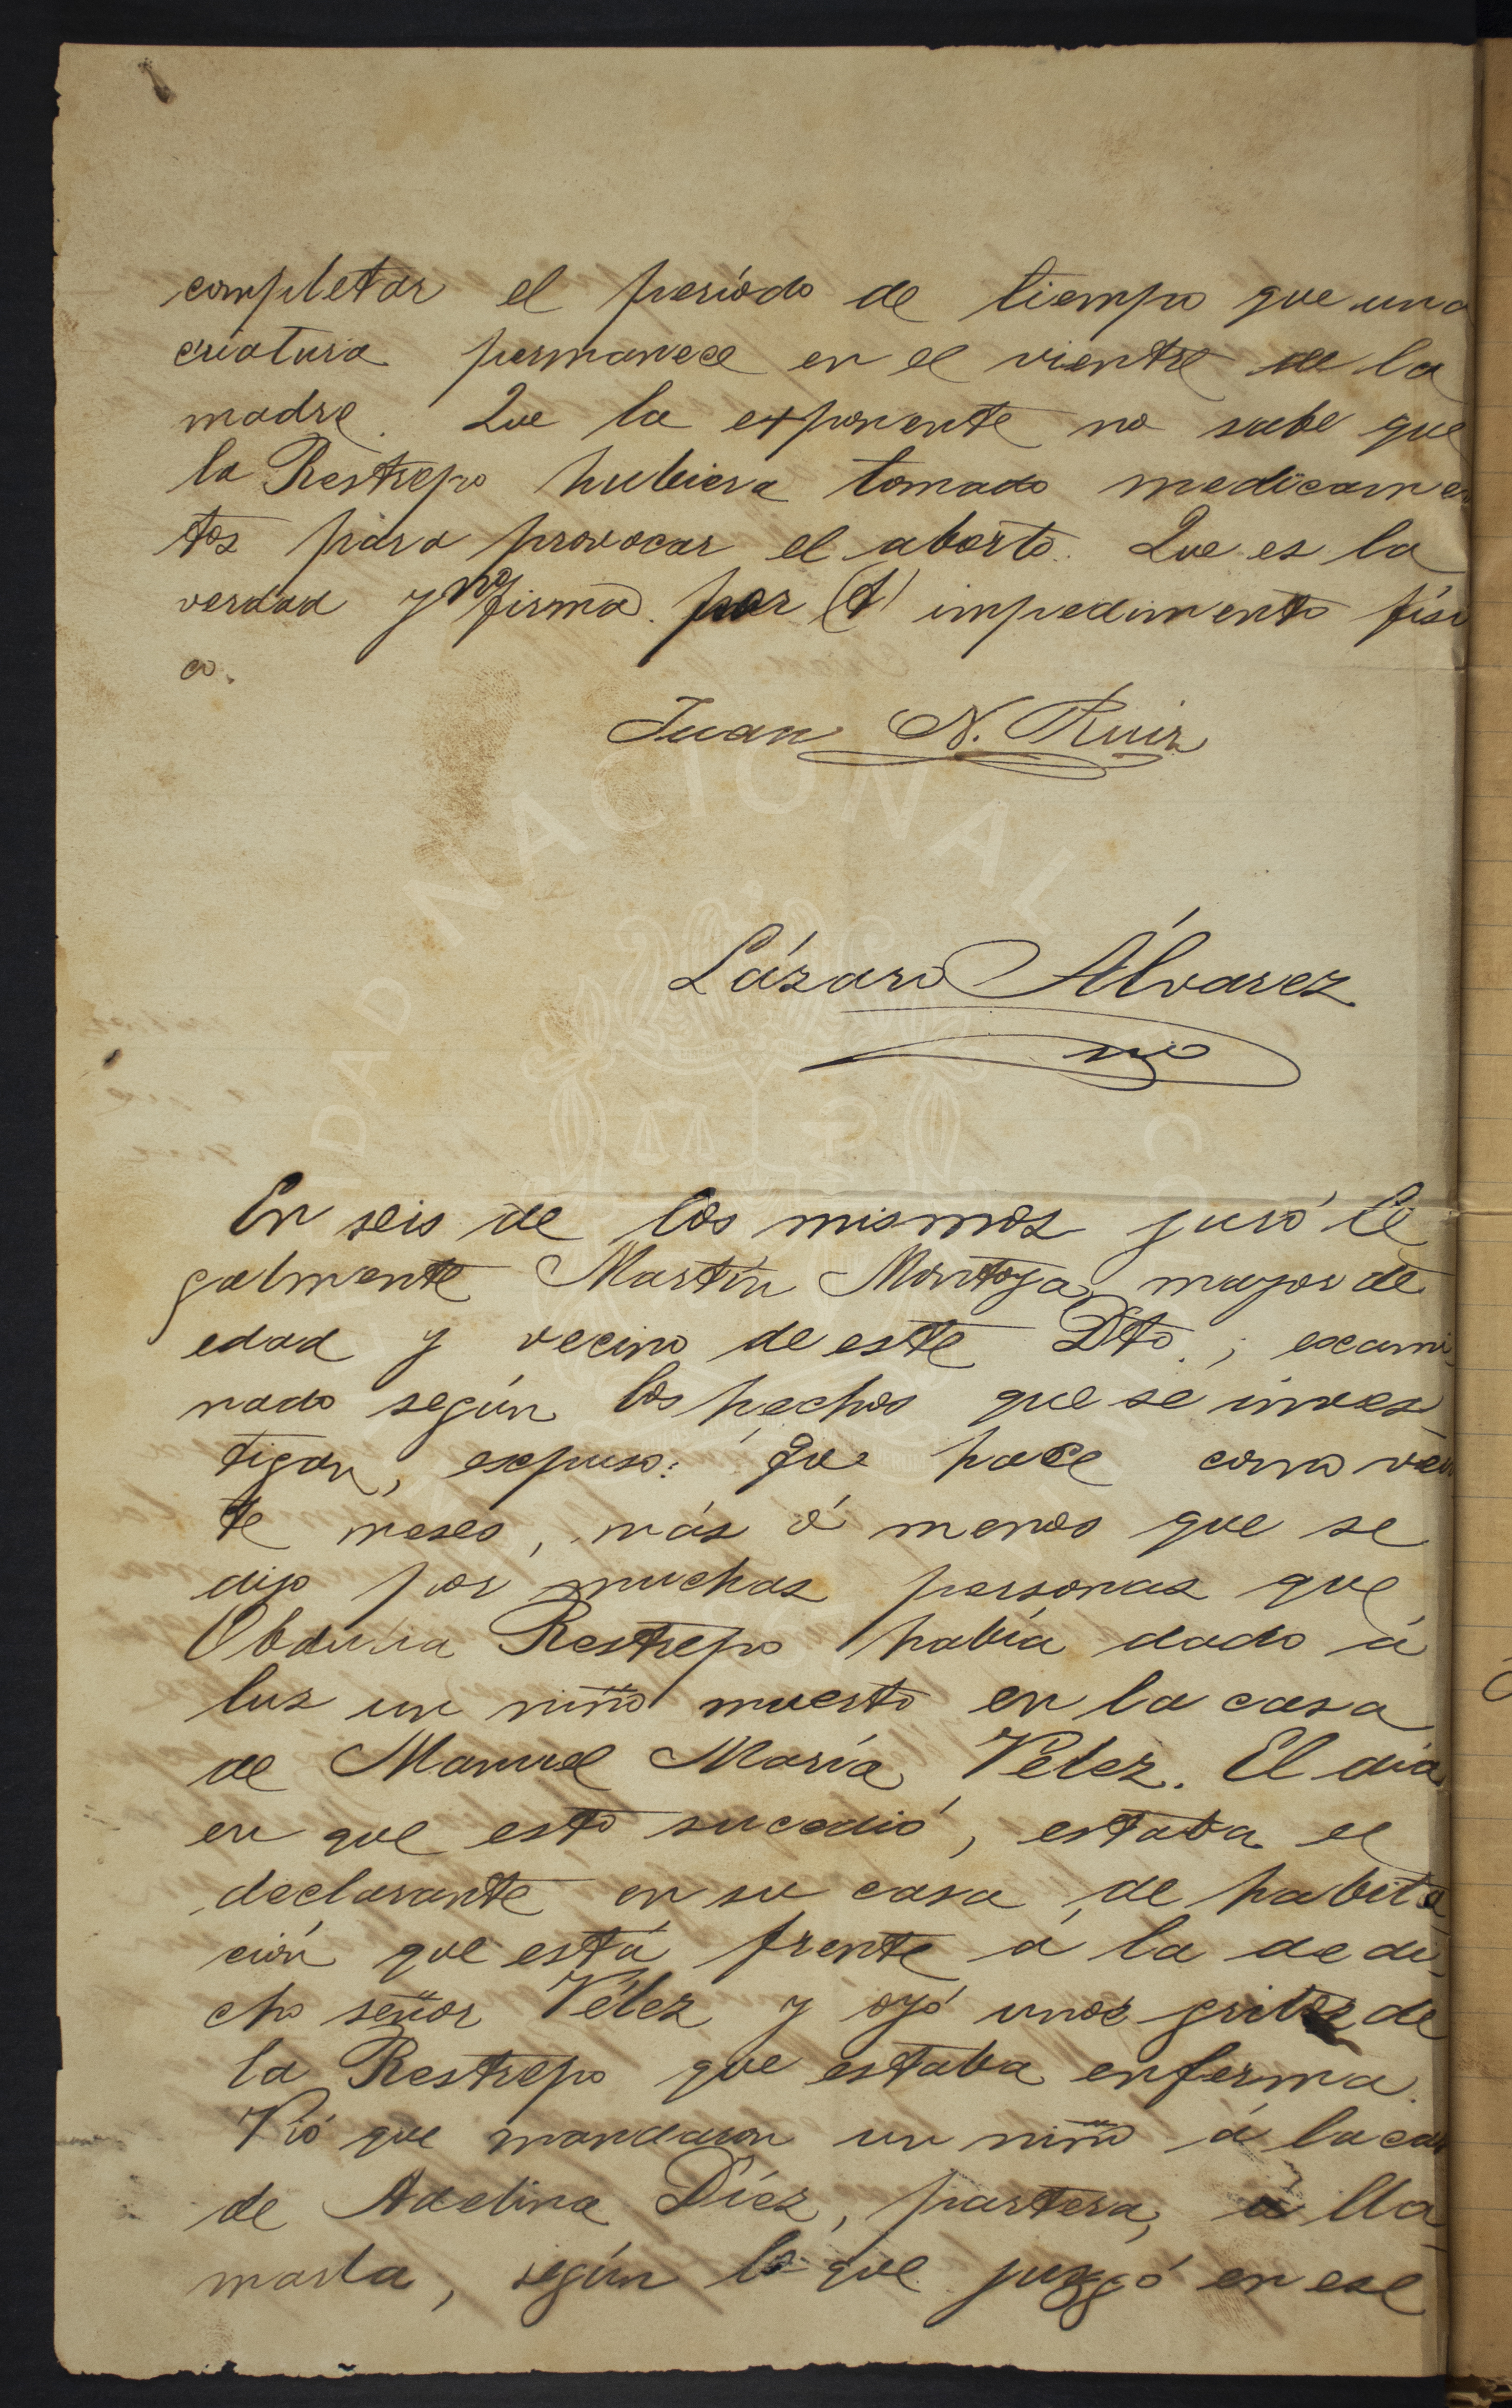 completar el período de tiempo que una
criatura permanece en el vientre de la
madre. Que la exponente no sabe que
la Restrepo hubiera tomado medicamen
tos para provocar el aborto. Que es la
verdad y no firma por impedimento físi
co.
Juan N. Ruiz
Lázaro Álvarez
En seis de los mismos juró le
galmente Martín Montoya, mayor de
edad y vecino de este Dto.; exami
nado según los hechos que se inves
tigan, expuso: Que hace como vein
te meses, más ó menos que se
dijo por muchas personas que
Obdulia Restrepo había dado á
luz un niño muerto en la casa
de Manuel María Velez. El día
en que esto sucedió, estaba el
declarante en su casa de habita
ción que está frente á la de di
cho señor Vélez y oyó unos gritos de
la Restrepo que estaba enferma.
Vió que mandaron un niño á la casa
de Adelina Díez, partera, á lla
marla, según lo que juzgó en ese
NACIONAL